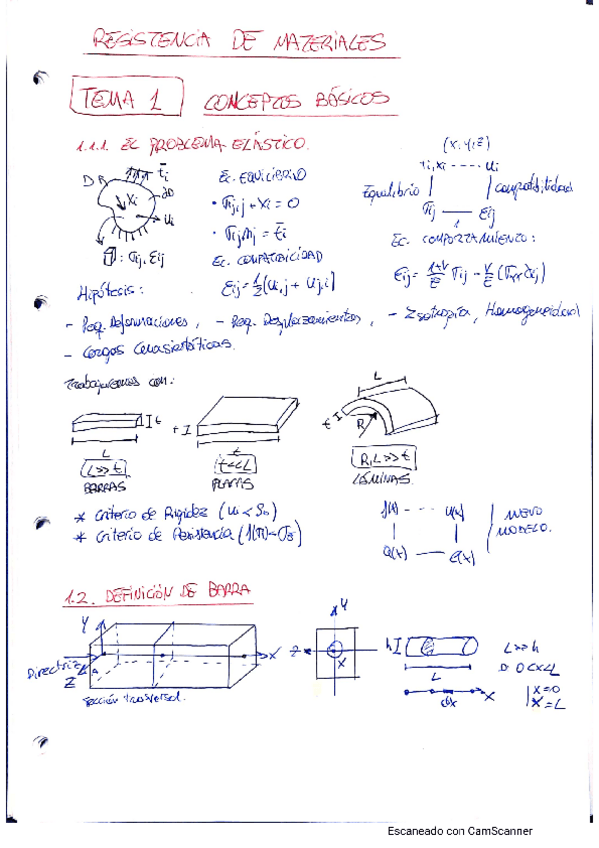 RESISTENCIA DE MATERIALES
TEMA 1 CONCEPTOS BÁSICOS
1.1.1. EL PROBLEMA ELÁSTICO.
(x,y,z)
t̄i
Xi
∂D
ui
: σij, εij
Ec. EQUILIBRIO
• σij,j + xi = 0
• σij nj = t̄i
Ec. COMPATIBILIDAD
εij = 1/2 (ui,j + uj,i)
ti, xi - - - - ui
Equilibrio
compatibilidad
σij — εij
Ec. COMPORTAMIENTO:
Hipótesis:
- Peq. Deformaciones, - Peq. Desplazamientos, - Isotropía, Homogeneidad
- Cargas Cuasiestáticas.
Trabajaremos con:
L
t
t
t
R
L
L >> t
t << L
R, L >> t
BARRAS
PLACAS
LÁMINAS.
* Criterio de Rigidez
* Criterio de Resistencia
u(x)
NUEVO
MODELO.
1.2. DEFINICIÓN DE BARRA
Y
X
Directriz
Z
Sección trasversal.
Y
Z
X
h
L
L >> h
0 < x < L
dx
X
x = 0
x = L
Escaneado con CamScanner